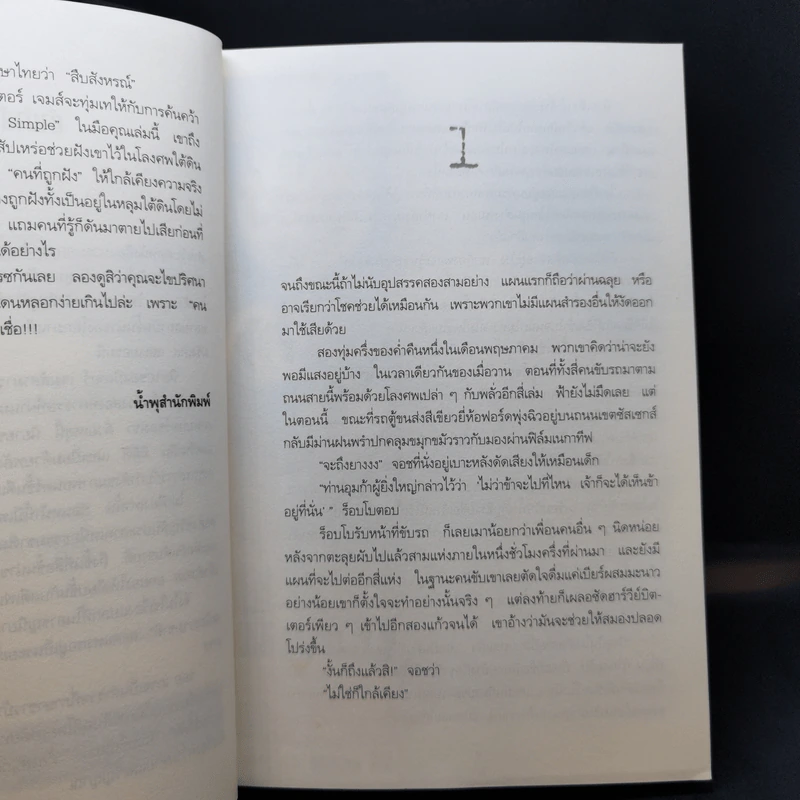 ษาไทยว่า “สืบสังหรณ์”
ตอร์ เจมส์จะทุ่มเทให้กับการค้นคว้า
Simple” ในมือคุณเล่มนี้ เขาถึง
สัปเหร่อช่วยฝังเขาไว้ในโลงศพใต้ดิน
“คนที่ถูกฝัง” ให้ใกล้เคียงความจริง
งถูกฝังทั้งเป็นอยู่ในหลุมใต้ดินโดยไม่
แถมคนที่รู้ก็ดันมาตายไปเสียก่อนที่
ได้อย่างไร
รซกันเลย ลองดูสิว่าคุณจะไขปริศนา
โดนหลอกง่ายเกินไปล่ะ เพราะ “คน
เชื่อ!!!
น้ำพุสำนักพิมพ์
1
จนถึงขณะนี้ถ้าไม่นับอุปสรรคสองสามอย่าง แผนแรกก็ถือว่าผ่านฉลุย หรือ
อาจเรียกว่าโชคช่วยได้เหมือนกัน เพราะพวกเขาไม่มีแผนสำรองอื่นให้งัดออก
มาใช้เสียด้วย
สองทุ่มครึ่งของค่ำคืนหนึ่งในเดือนพฤษภาคม พวกเขาคิดว่าน่าจะยัง
พอมีแสงอยู่บ้าง ในเวลาเดียวกันของเมื่อวาน ตอนที่ทั้งสี่คนขับรถมาตาม
ถนนสายนี้พร้อมด้วยโลงศพเปล่า ๆ กับพลั่วอีกสี่เล่ม ฟ้ายังไม่มืดเลย แต่
ในตอนนี้ ขณะที่รถตู้ขนส่งสีเขียวยี่ห้อฟอร์ดพุ่งฉิวอยู่บนถนนเขตซัสเซกส์
กลับมีม่านฝนพรำปกคลุมขมุกขมัวราวกับมองผ่านฟิล์มเนกาทีฟ
“จะถึงยางงง” จอชที่นั่งอยู่เบาะหลังดัดเสียงให้เหมือนเด็ก
“ท่านอุมก้าผู้ยิ่งใหญ่กล่าวไว้ว่า ‘ไม่ว่าข้าจะไปที่ไหน เจ้าก็จะได้เห็นข้า
อยู่ที่นั่น’ ” ร็อบโบตอบ
ร็อบโบรับหน้าที่ขับรถ ก็เลยเมาน้อยกว่าเพื่อนคนอื่น ๆ นิดหน่อย
หลังจากตะลุยผับไปแล้วสามแห่งภายในหนึ่งชั่วโมงครึ่งที่ผ่านมา และยังมี
แผนที่จะไปต่ออีกสี่แห่ง ในฐานะคนขับเขาเลยตัดใจดื่มแค่เบียร์ผสมมะนาว
อย่างน้อยเขาก็ตั้งใจจะทำอย่างนั้นจริง ๆ แต่ลงท้ายก็เผลอซัดฮาร์วีย์บิต-
เตอร์เพียว ๆ เข้าไปอีกสองแก้วจนได้ เขาอ้างว่ามันจะช่วยให้สมองปลอด
โปร่งขึ้น
“งั้นก็ถึงแล้วสิ!” จอชว่า
“ไม่ใช่ก็ใกล้เคียง”